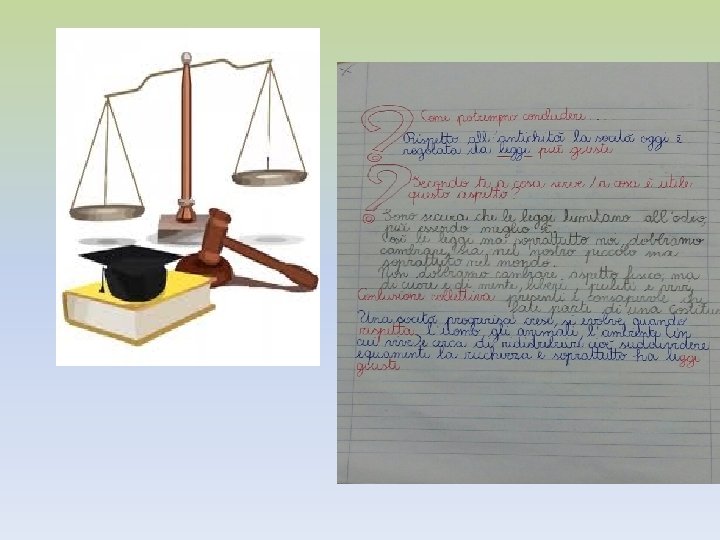 Come potremmo concludere...
Rispetto all'antichità la società oggi è
regolata da leggi più giuste
Secondo te a cosa serve / a cosa è utile
questo aspetto?
Sono sicura che le leggi limitano all'odio,
pur essendo meglio
così le leggi ma soprattutto noi dobbiamo
cambiare, sia nel nostro piccolo ma
soprattutto nel mondo.
Non dobbiamo cambiare, aspetto fisico, ma
di cuore e di mente, liberi, puliti e puri,
Conclusione collettiva presenti e consapevole che
fate parte di una
Una società progredisce cresce, si evolve, quando
rispetta l'uomo gli animali, l'ambiente in
cui vive e cerca di ridistribuire cioè suddividere
equamente la ricchezza e soprattutto ha leggi
giuste